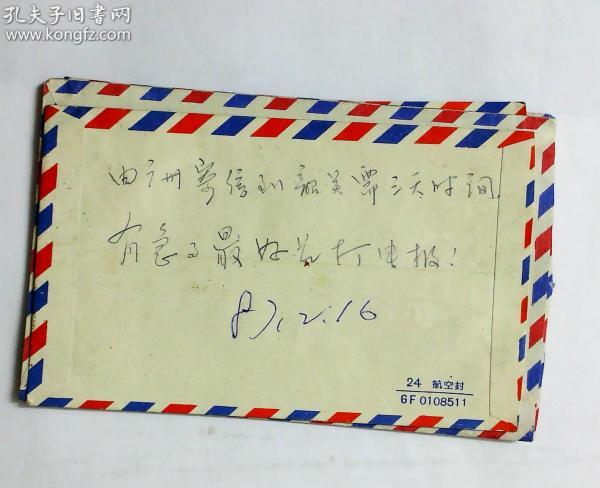 孔夫子旧书网
www.kongfz.com
由广州寄信到韶关需三天时间
有急事最好是打电报!
87.2.16
24 航空封
GF 0108511